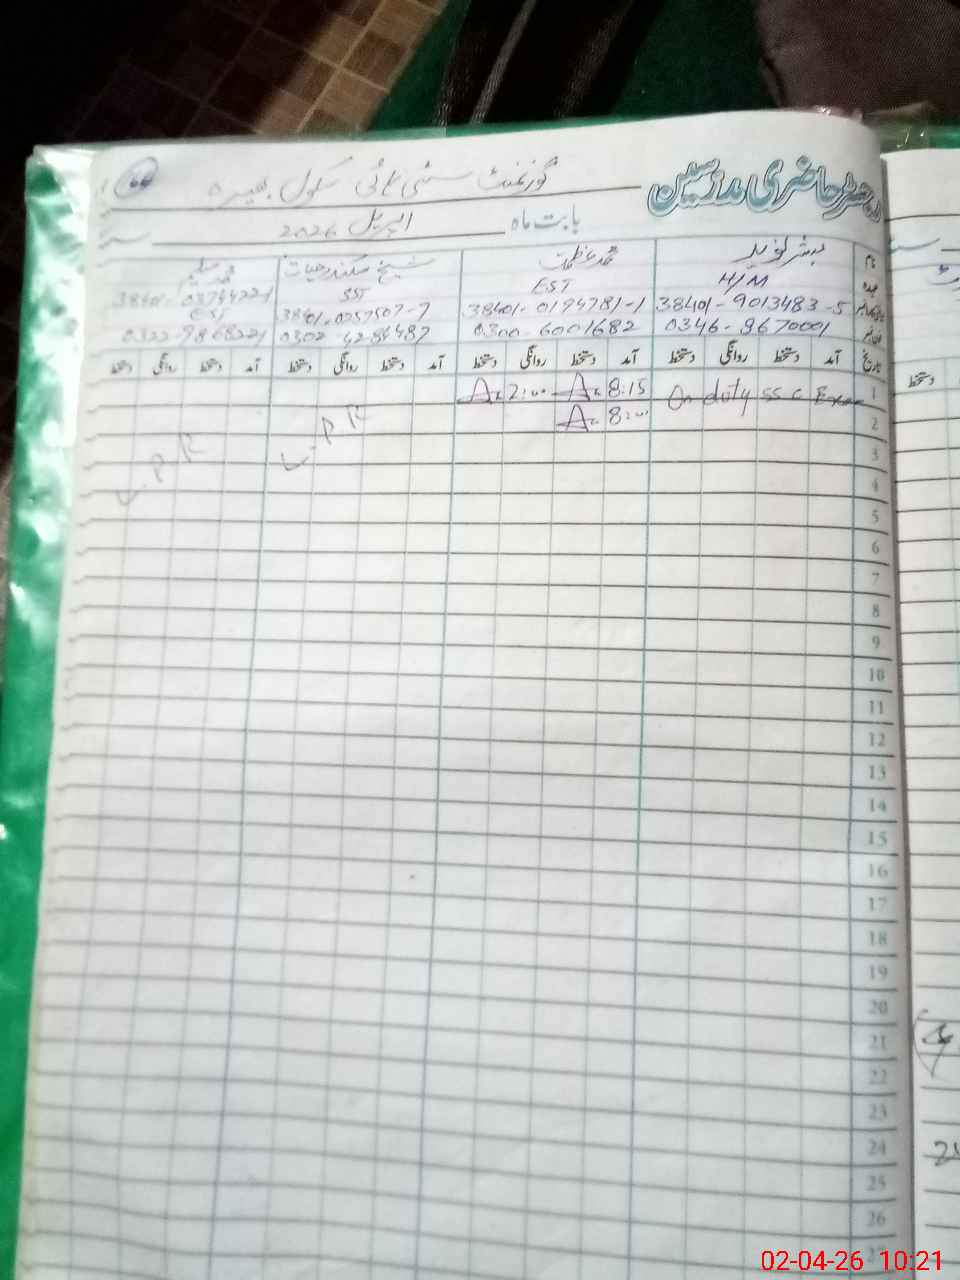 رجسٹر حاضری مدرسین گورنمنٹ سٹی ہائی سکول بھیرہ
بابت ماہ اپریل 2026
نام مبشر نوید محمد عظمت شیخ سکندر حیات محمد سلیم
عہدہ H/M EST SST EST
38401-9013483-5 38401-0194781-1 38401-0257507-7 38401-0374422-1
0346-9670001 0300-6001682 0302-4284487 0322-7868221
تاریخ آمد دستخط روانگی دستخط آمد دستخط روانگی دستخط آمد دستخط روانگی دستخط آمد دستخط روانگی دستخط
1 On duty SSC Exam 8:15 2:00
2 8:00
L.P.R L.P.R
3
4
5
6
7
8
9
10
11
12
13
14
15
16
17
18
19
20
21
22
23
24
25
26
دستخط
02-04-26 10:21